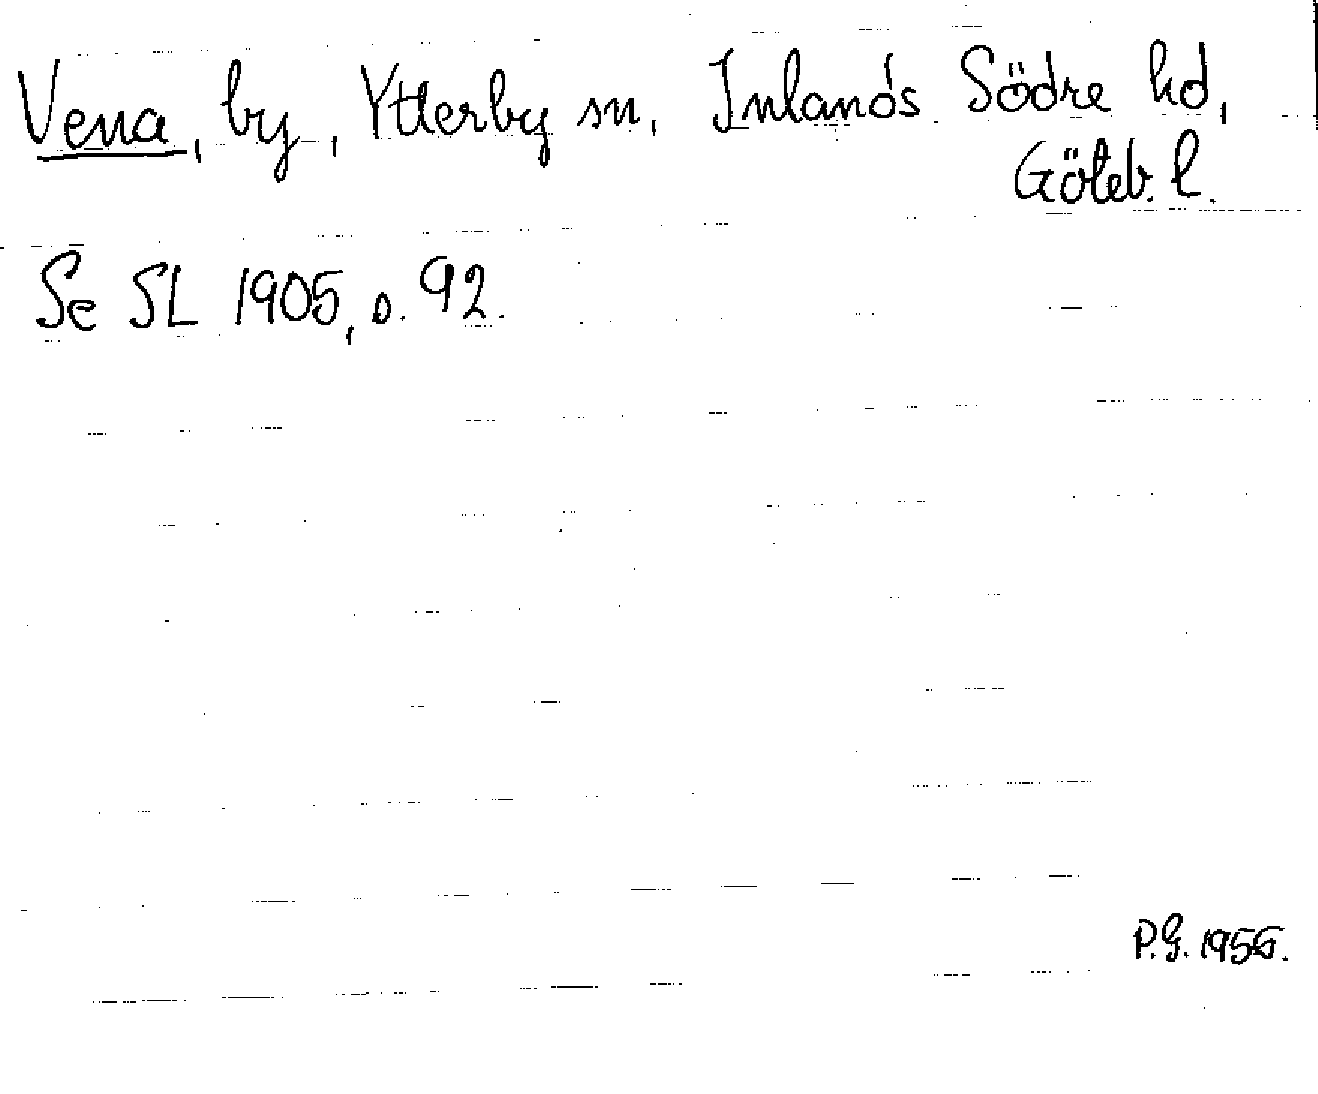 Vena, by, Ytterby sn, Inlands Södre hd,
Göteb. l.
Se SL 1905, s. 92.
P.G. 1956.